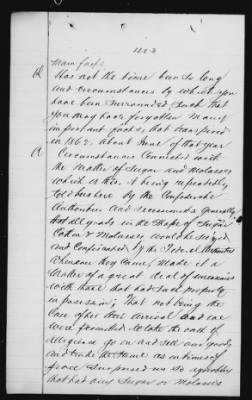 1123
Main facts
Q Has not the time been so long
and circumstances by which you
have been surrounded, such that
you may have forgotten many
important facts, that transpired
in 1862, about June of that year
A Circumstances Connected with
the Matter of Sugar and Molasses
which is this, it being repeatedly
told us here by the Confederate
Authorities and
that all goods in the Shape of Sugar
Cotton & Molasses would be seized
and Confiscated, by the Federal Authorities
whenever they Came, Made it a
Matter of a great deal of
with those that had such property
in possession, That not being the
Case after their Arrival and we
were permitted to take the oath of
Allegiance go on and sell our goods
and trade the Same as in times of
peace Surprised us so agreeably
that had any Sugar or Molasses